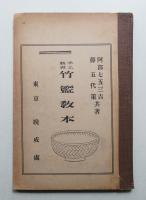 阿部七五三吉
藤五代策 共著
手工教科
竹籃教本
東京 晩成處